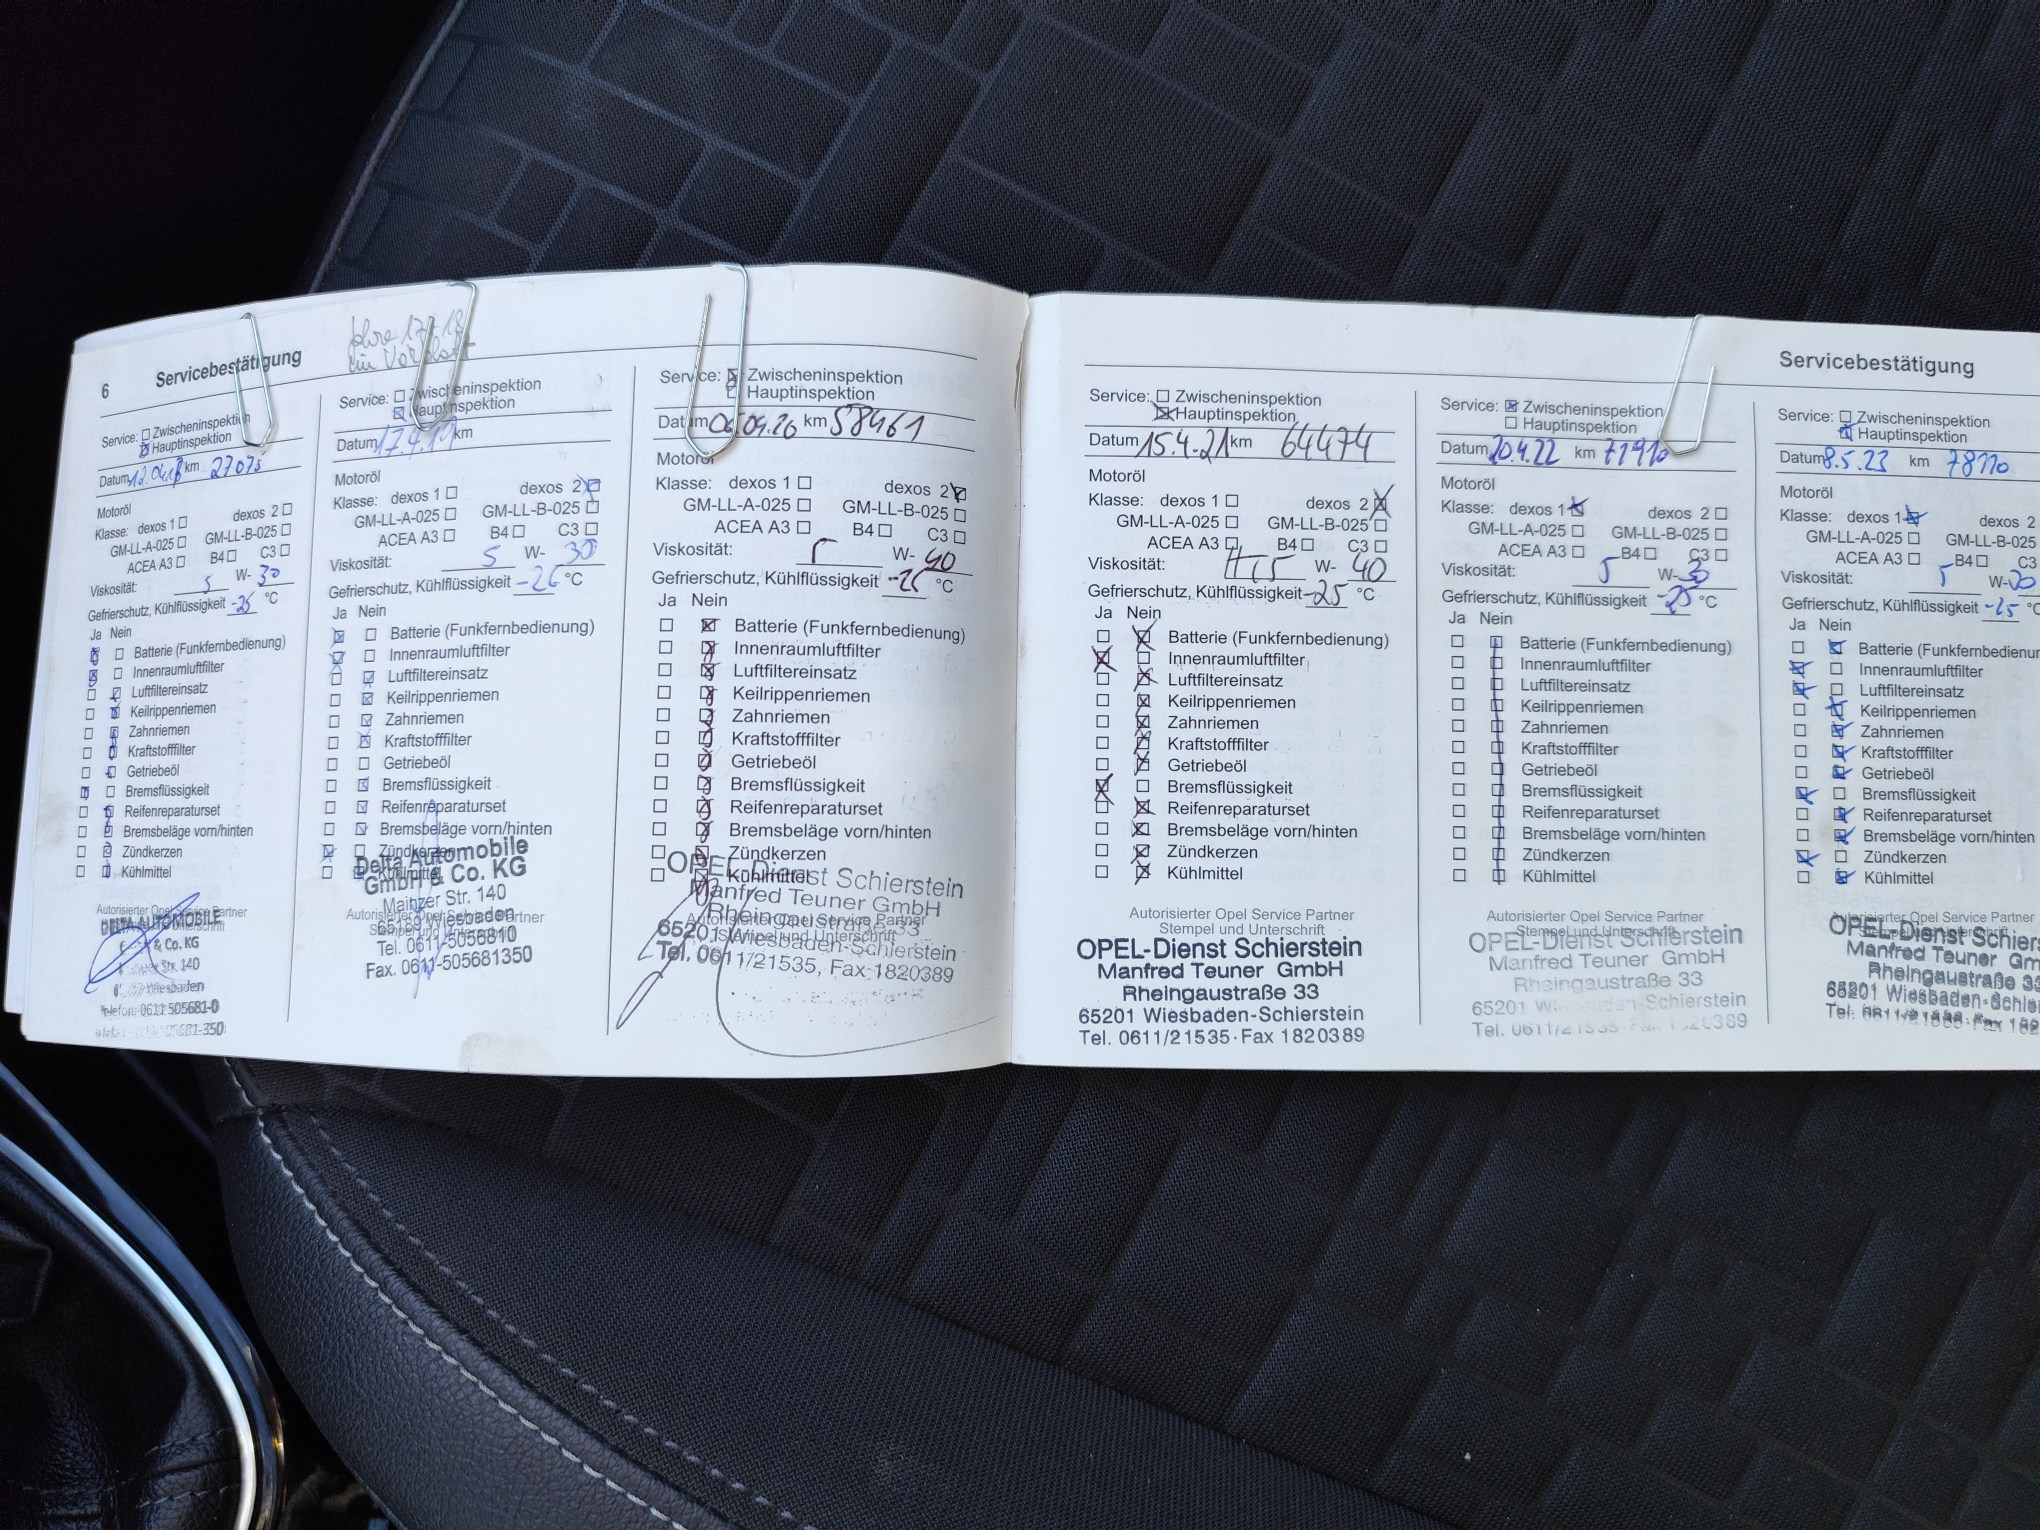 6 Servicebestätigung
Jahre 17+18
Service: Zwischeninspektion
Hauptinspektion
Datum km 27075
Motoröl
Klasse: dexos 1 dexos 2
GM-LL-A-025 GM-LL-B-025
ACEA A3 B4 C3
Viskosität: 5 W- 30
Gefrierschutz, Kühlflüssigkeit -25 °C
Ja Nein
Batterie (Funkfernbedienung)
Innenraumluftfilter
Luftfiltereinsatz
Keilrippenriemen
Zahnriemen
Kraftstofffilter
Getriebeöl
Bremsflüssigkeit
Reifenreparaturset
Bremsbeläge vorn/hinten
Zündkerzen
Kühlmittel
Autorisierter Opel Service Partner
DELTA AUTOMOBILE
& Co. KG
Str. 140
Wiesbaden
Telefon: 0611-505681-0
Service: Zwischeninspektion
Hauptinspektion
Datum 17.4.19 km
Motoröl
Klasse: dexos 1 dexos 2
GM-LL-A-025 GM-LL-B-025
ACEA A3 B4 C3
Viskosität: 5 W- 30
Gefrierschutz, Kühlflüssigkeit -26 °C
Ja Nein
Batterie (Funkfernbedienung)
Innenraumluftfilter
Luftfiltereinsatz
Keilrippenriemen
Zahnriemen
Kraftstofffilter
Getriebeöl
Bremsflüssigkeit
Reifenreparaturset
Bremsbeläge vorn/hinten
Zündkerzen
Kühlmittel
Delta Automobile
GmbH & Co. KG
Mainzer Str. 140
Autorisierter Opel Service Partner
Stempel und Unterschrift
65189 Wiesbaden
Tel. 0611-5056810
Fax. 0611-505681350
Service: Zwischeninspektion
Hauptinspektion
Datum 06.04.20 km 58461
Motoröl
Klasse: dexos 1 dexos 2
GM-LL-A-025 GM-LL-B-025
ACEA A3 B4 C3
Viskosität: 5 W- 40
Gefrierschutz, Kühlflüssigkeit °C
Ja Nein
Batterie (Funkfernbedienung)
Innenraumluftfilter
Luftfiltereinsatz
Keilrippenriemen
Zahnriemen
Kraftstofffilter
Getriebeöl
Bremsflüssigkeit
Reifenreparaturset
Bremsbeläge vorn/hinten
Zündkerzen
Kühlmittel
OPEL-Dienst Schierstein
Manfred Teuner GmbH
Rheingaustraße 33
Autorisierter Opel Service Partner
Stempel und Unterschrift
65201 Wiesbaden-Schierstein
Tel. 0611/21535, Fax 1820389
Servicebestätigung
Service: Zwischeninspektion
Hauptinspektion
Datum 15.4.21 km 64474
Motoröl
Klasse: dexos 1 dexos 2
GM-LL-A-025 GM-LL-B-025
ACEA A3 B4 C3
Viskosität: W- 40
Gefrierschutz, Kühlflüssigkeit -25 °C
Ja Nein
Batterie (Funkfernbedienung)
Innenraumluftfilter
Luftfiltereinsatz
Keilrippenriemen
Zahnriemen
Kraftstofffilter
Getriebeöl
Bremsflüssigkeit
Reifenreparaturset
Bremsbeläge vorn/hinten
Zündkerzen
Kühlmittel
Autorisierter Opel Service Partner
Stempel und Unterschrift
OPEL-Dienst Schierstein
Manfred Teuner GmbH
Rheingaustraße 33
65201 Wiesbaden-Schierstein
Tel. 0611/21535·Fax 1820389
Service: Zwischeninspektion
Hauptinspektion
Datum 20.4.22 km 71910
Motoröl
Klasse: dexos 1 dexos 2
GM-LL-A-025 GM-LL-B-025
ACEA A3 B4 C3
Viskosität: 5 W- 30
Gefrierschutz, Kühlflüssigkeit -25 °C
Ja Nein
Batterie (Funkfernbedienung)
Innenraumluftfilter
Luftfiltereinsatz
Keilrippenriemen
Zahnriemen
Kraftstofffilter
Getriebeöl
Bremsflüssigkeit
Reifenreparaturset
Bremsbeläge vorn/hinten
Zündkerzen
Kühlmittel
Autorisierter Opel Service Partner
Stempel und Unterschrift
OPEL-Dienst Schierstein
Manfred Teuner GmbH
Rheingaustraße 33
65201 Wiesbaden-Schierstein
Tel. 0611/21535·Fax 1820389
Service: Zwischeninspektion
Hauptinspektion
Datum 8.5.23 km 78110
Motoröl
Klasse: dexos 1 dexos 2
GM-LL-A-025 GM-LL-B-025
ACEA A3 B4 C3
Viskosität: 5 W-
Gefrierschutz, Kühlflüssigkeit -25 °C
Ja Nein
Batterie (Funkfernbedienun
Innenraumluftfilter
Luftfiltereinsatz
Keilrippenriemen
Zahnriemen
Kraftstofffilter
Getriebeöl
Bremsflüssigkeit
Reifenreparaturset
Bremsbeläge vorn/hinten
Zündkerzen
Kühlmittel
Autorisierter Opel Service Partner
Stempel und Unterschrift
OPEL-Dienst Schiers
Manfred Teuner Gm
Rheingaustraße 33
65201 Wiesbaden-Schie